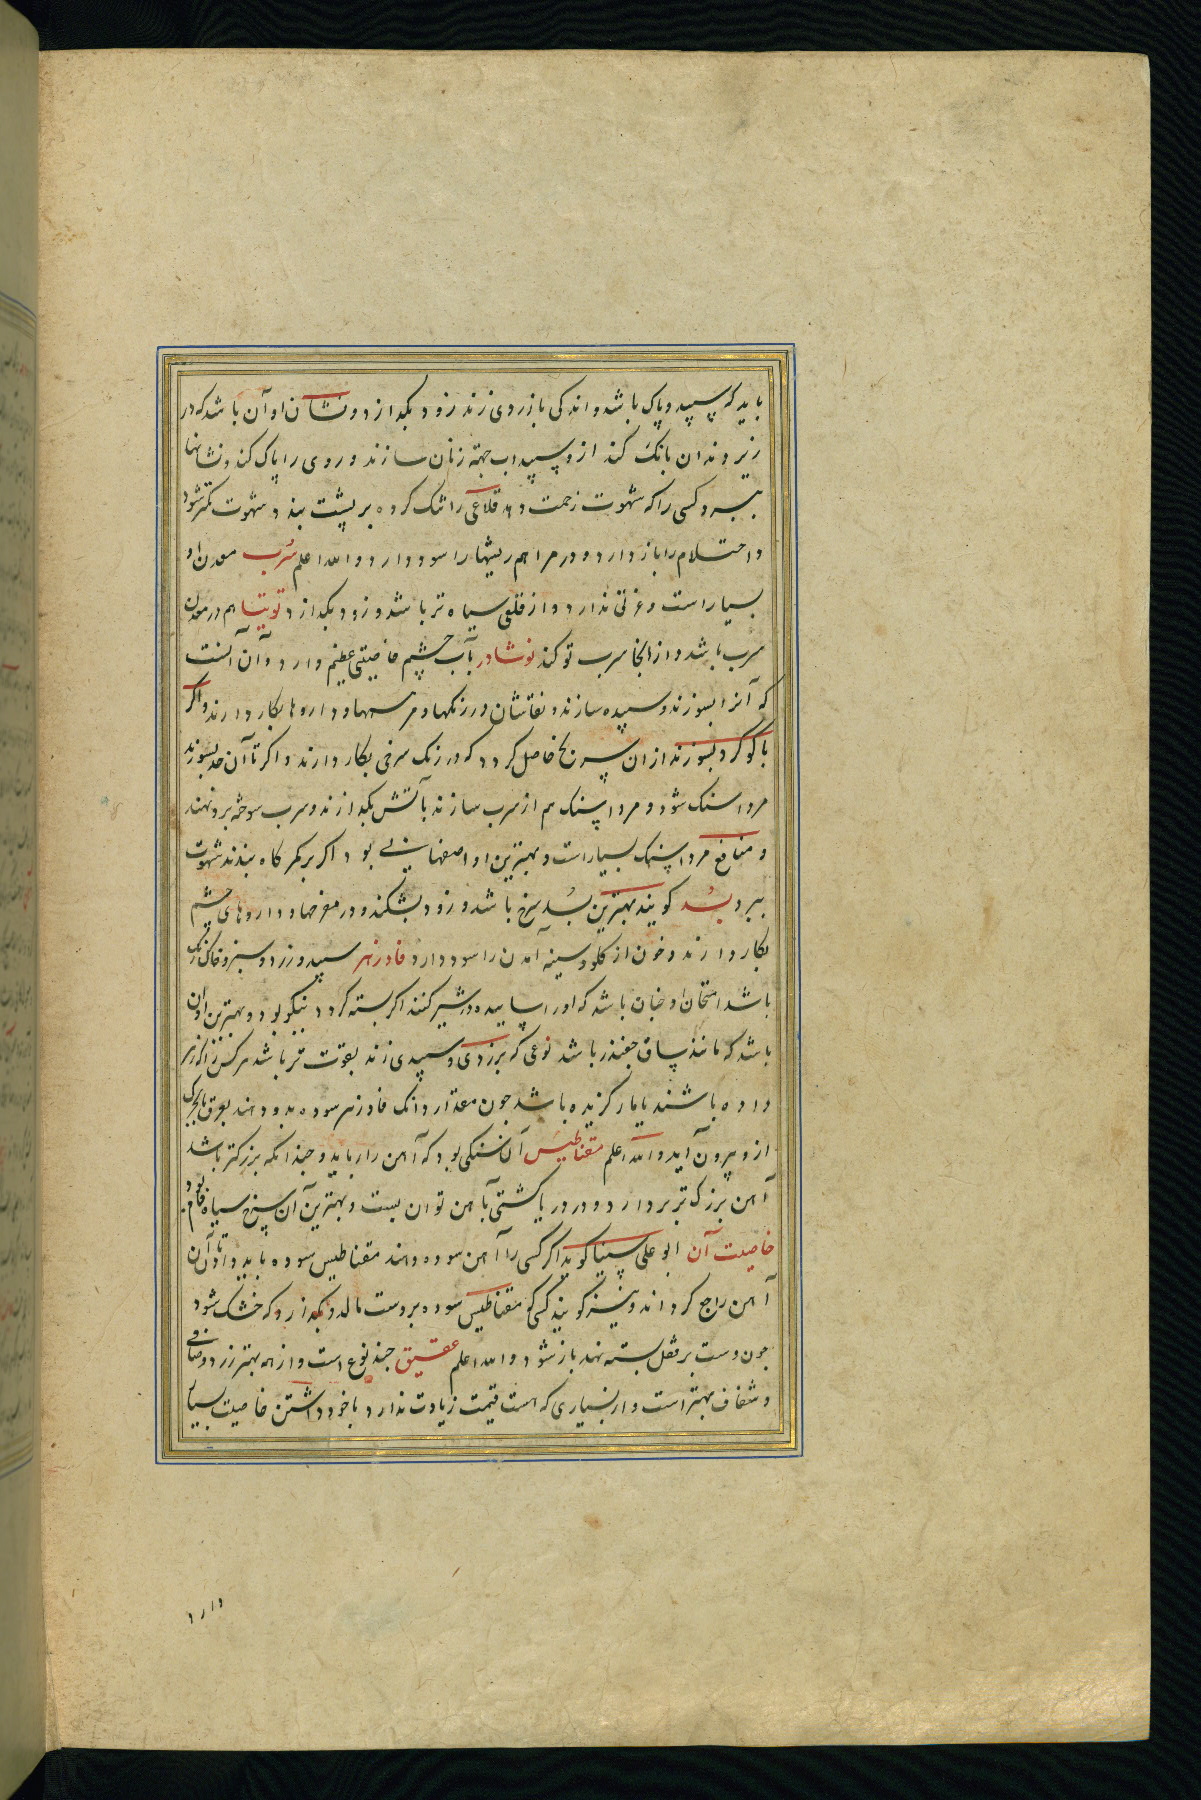 باید که سپید و پاک باشد و اندکی بازردی زند زود بکدازد و نشان او آن باشد که در
زیر دندان بانک کند ازو سپیداب جهة زنان سازند و روی را پاک کند و نشانها
ببرد و کسی را که شهوت زحمت دهد قلاعی را تنک کرده بر پشت بندد شهوت کمتر شود
و احتلام را باز دارد و در مراهم ریشها را سود دارد والله اعلم سُرب معدن او
بسیار است و عزتی ندارد و از قلعی سیاه تر باشد و زود بکدازد توتیا هم در معدن
سرب باشد و از انجا سرب تو کند نوشادر بآب چشم خاصیتی عظیم دارد و آن آنست
که آنرا بسوزند و سپیده سازند و نقاشان در رنکها و مرهمها و داروها بکار دارند و اکر
با کوکرد بسوزند از آن سرنج حاصل کردد که در رنک سرخی بکار دارند و اکر تا آن حد بسوزند
مرداسنک شود و مرداسنک هم از سرب سازند بآتش بکدازند و سرب سوخته برو نهند
و منافع مرداسنک بسیار است و بهترین او اصفهانی بود اکر بر کمرکاه بندند شهوت
ببرد بُسد کویند بهترین بُسد سرخ باشد و زود بشکند و در مفرحها و داروهای چشم
بکار دارند و خون از کلو و سینه آمدن را سود دارد فادزهر سپید و زرد و سبز و خاک رنک
باشد امتحان او چنان باشد که او را ساییده در شیر کنند اکر بسته کردد نیکو بود و بهترین آن
باشد که مانند ساق چغندر باشد نوعی که بزردی و سپیدی زند بقوت تر باشد هر کس را که زهر
داده باشند یا مار کزیده باشد جون مقدار دانک فادزهر سوده بدو دهند بعرق
از و بیرون آید والله اعلم مقناطیس آن سنکی بود که آهن را رباید و چندانکه بزرکتر باشد
آهن بزرک تر بردارد و در دریا کشتی بآهن توان بست و بهترین آن سرخ سیاه فام بود
خاصیت آن ابو علی سینا کوید اکر کسی را آهن سوده دهند مقناطیس سوده باید داد تا آن
آهن راجع کرداند و نیز کویند کسی کو مقناطیس سوده بر دست مالد و بکذارد که خشک شود
جون دست بر قفل بسته نهد باز شود والله اعلم عقیق چند نوع است و از همه بهتر زرد و صافی
و شفاف بهتر است و از بسیاری که هست قیمت زیادت ندارد با خود داشتن خاصیت بسیار
دارد